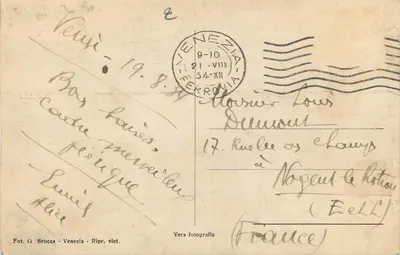 Venise - 19.8.34
Bons baisers.
cadre merveilleux
féerique
Alice
VENEZIA
9-10
21 VIII
34-XII
FERROVIA
Monsieur Louis
Dumont
17. Rue des Champs
à
Nogent le Rotrou
(E et L)
(France)
Fot. G. Brocca - Venezia - Ripr. viet.
Vera fotografia